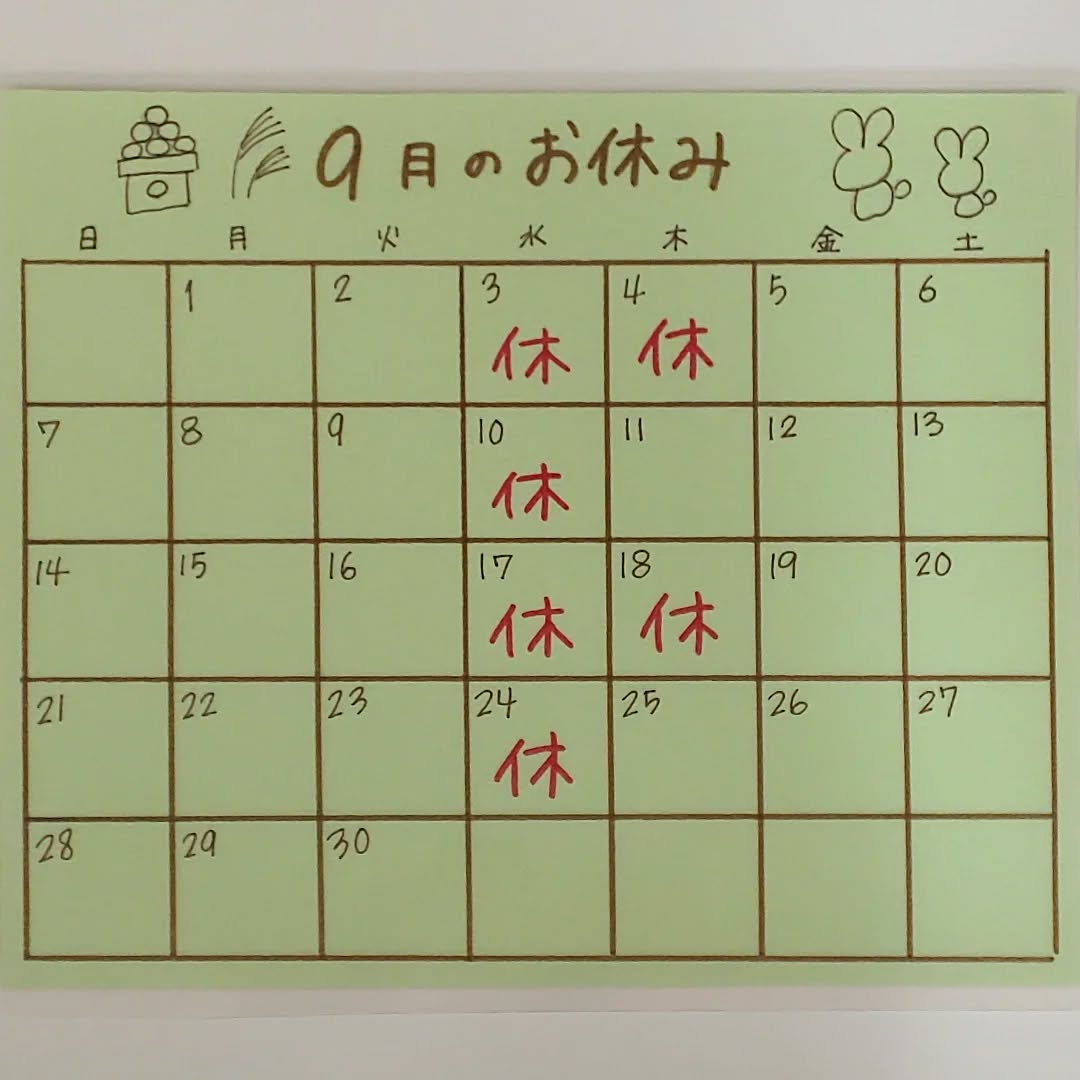 9月のお休み
日 月 火 水 木 金 土
1 2 3 4 5 6
休 休
7 8 9 10 11 12 13
休
14 15 16 17 18 19 20
休 休
21 22 23 24 25 26 27
休
28 29 30